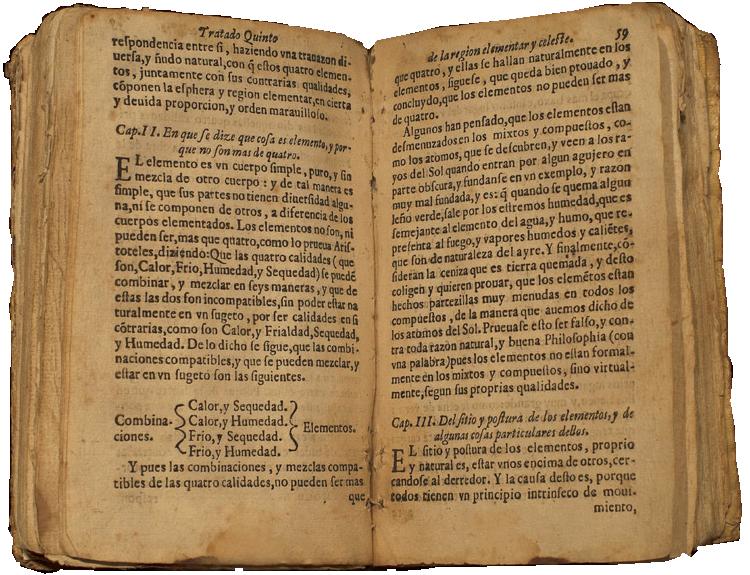 Tratado Quinto
respondencia entre si, haziendo vna trauazon di-
uersa, y ñudo natural, con q̃ estos quatro elemen-
tos, juntamente con sus contrarias qualidades,
cõponen la esphera y region elementar, en cierta
y deuida proporcion, y orden marauilloso.
Cap. II. En que se dize que cosa es elemento, y por-
que no son mas de quatro.
EL elemento es vn cuerpo simple, puro, y sin
mezcla de otro cuerpo: y de tal manera es
simple, que sus partes no tienen diuersidad algu-
na, ni se componen de otros, a diferencia de los
cuerpos elementados. Los elementos no son, ni
pueden ser, mas que quatro, como lo prueua Aris-
toteles, diziendo: Que las quatro calidades (que
son, Calor, Frio, Humedad, y Sequedad) se puedẽ
combinar, y mezclar en seys maneras, y que de
estas las dos son incompatibles, sin poder estar na
turalmente en vn sugeto, por ser calidades en si
cõtrarias, como son Calor, y Frialdad, Sequedad,
y Humedad. De lo dicho se sigue, que las combi-
naciones compatibles, y que se pueden mezclar, y
estar en vn sugeto son las siguientes.
Combina-
ciones.
Calor, y Sequedad.
Calor, y Humedad.
Frio, y Sequedad.
Frio, y Humedad.
Elementos.
Y pues las combinaciones, y mezclas compa-
tibles de las quatro calidades, no pueden ser mas
que
de la region elementar y celeste. 59
que quatro, y ellas se hallan naturalmente en los
elementos, siguese, que queda bien prouado, y
concluydo, que los elementos no pueden ser mas
de quatro.
Algunos han pensado, que los elementos estan
desmenuzados en los mixtos y compuestos, co-
mo los atomos, que se descubren, y veen a los ra-
yos del Sol quando entran por algun agujero en
parte obscura, y fundanse en vn exemplo, y razon
muy mal fundada, y es: q̃ quando se quema algun
leño verde, sale por los estremos humedad, que es
semejante al elemento del agua, y humo, que re-
presenta al fuego, y vapores humedos y caliẽtes,
que son de naturaleza del ayre. Y finalmente, cõ-
sideran la ceniza que es tierra quemada, y desto
coligen y quieren prouar, que los elemẽtos estan
hechos partezillas muy menudas en todos los
compuestos, de la manera que auemos dicho de
los atomos del Sol. Prueuase esto ser falso, y con-
tra toda razon natural, y buena Philosophia (con
vna palabra) pues los elementos no estan formal-
mente en los mixtos y compuestos, sino virtual-
mente, segun sus proprias qualidades.
Cap. III. Del sitio y postura de los elementos, y de
algunas cosas particulares dellos.
EL sitio y postura de los elementos, proprio
y natural es, estar vnos encima de otros, cer-
candose al derredor. Y la causa desto es, porque
todos tienen vn principio intrinseco de moui-
miento,